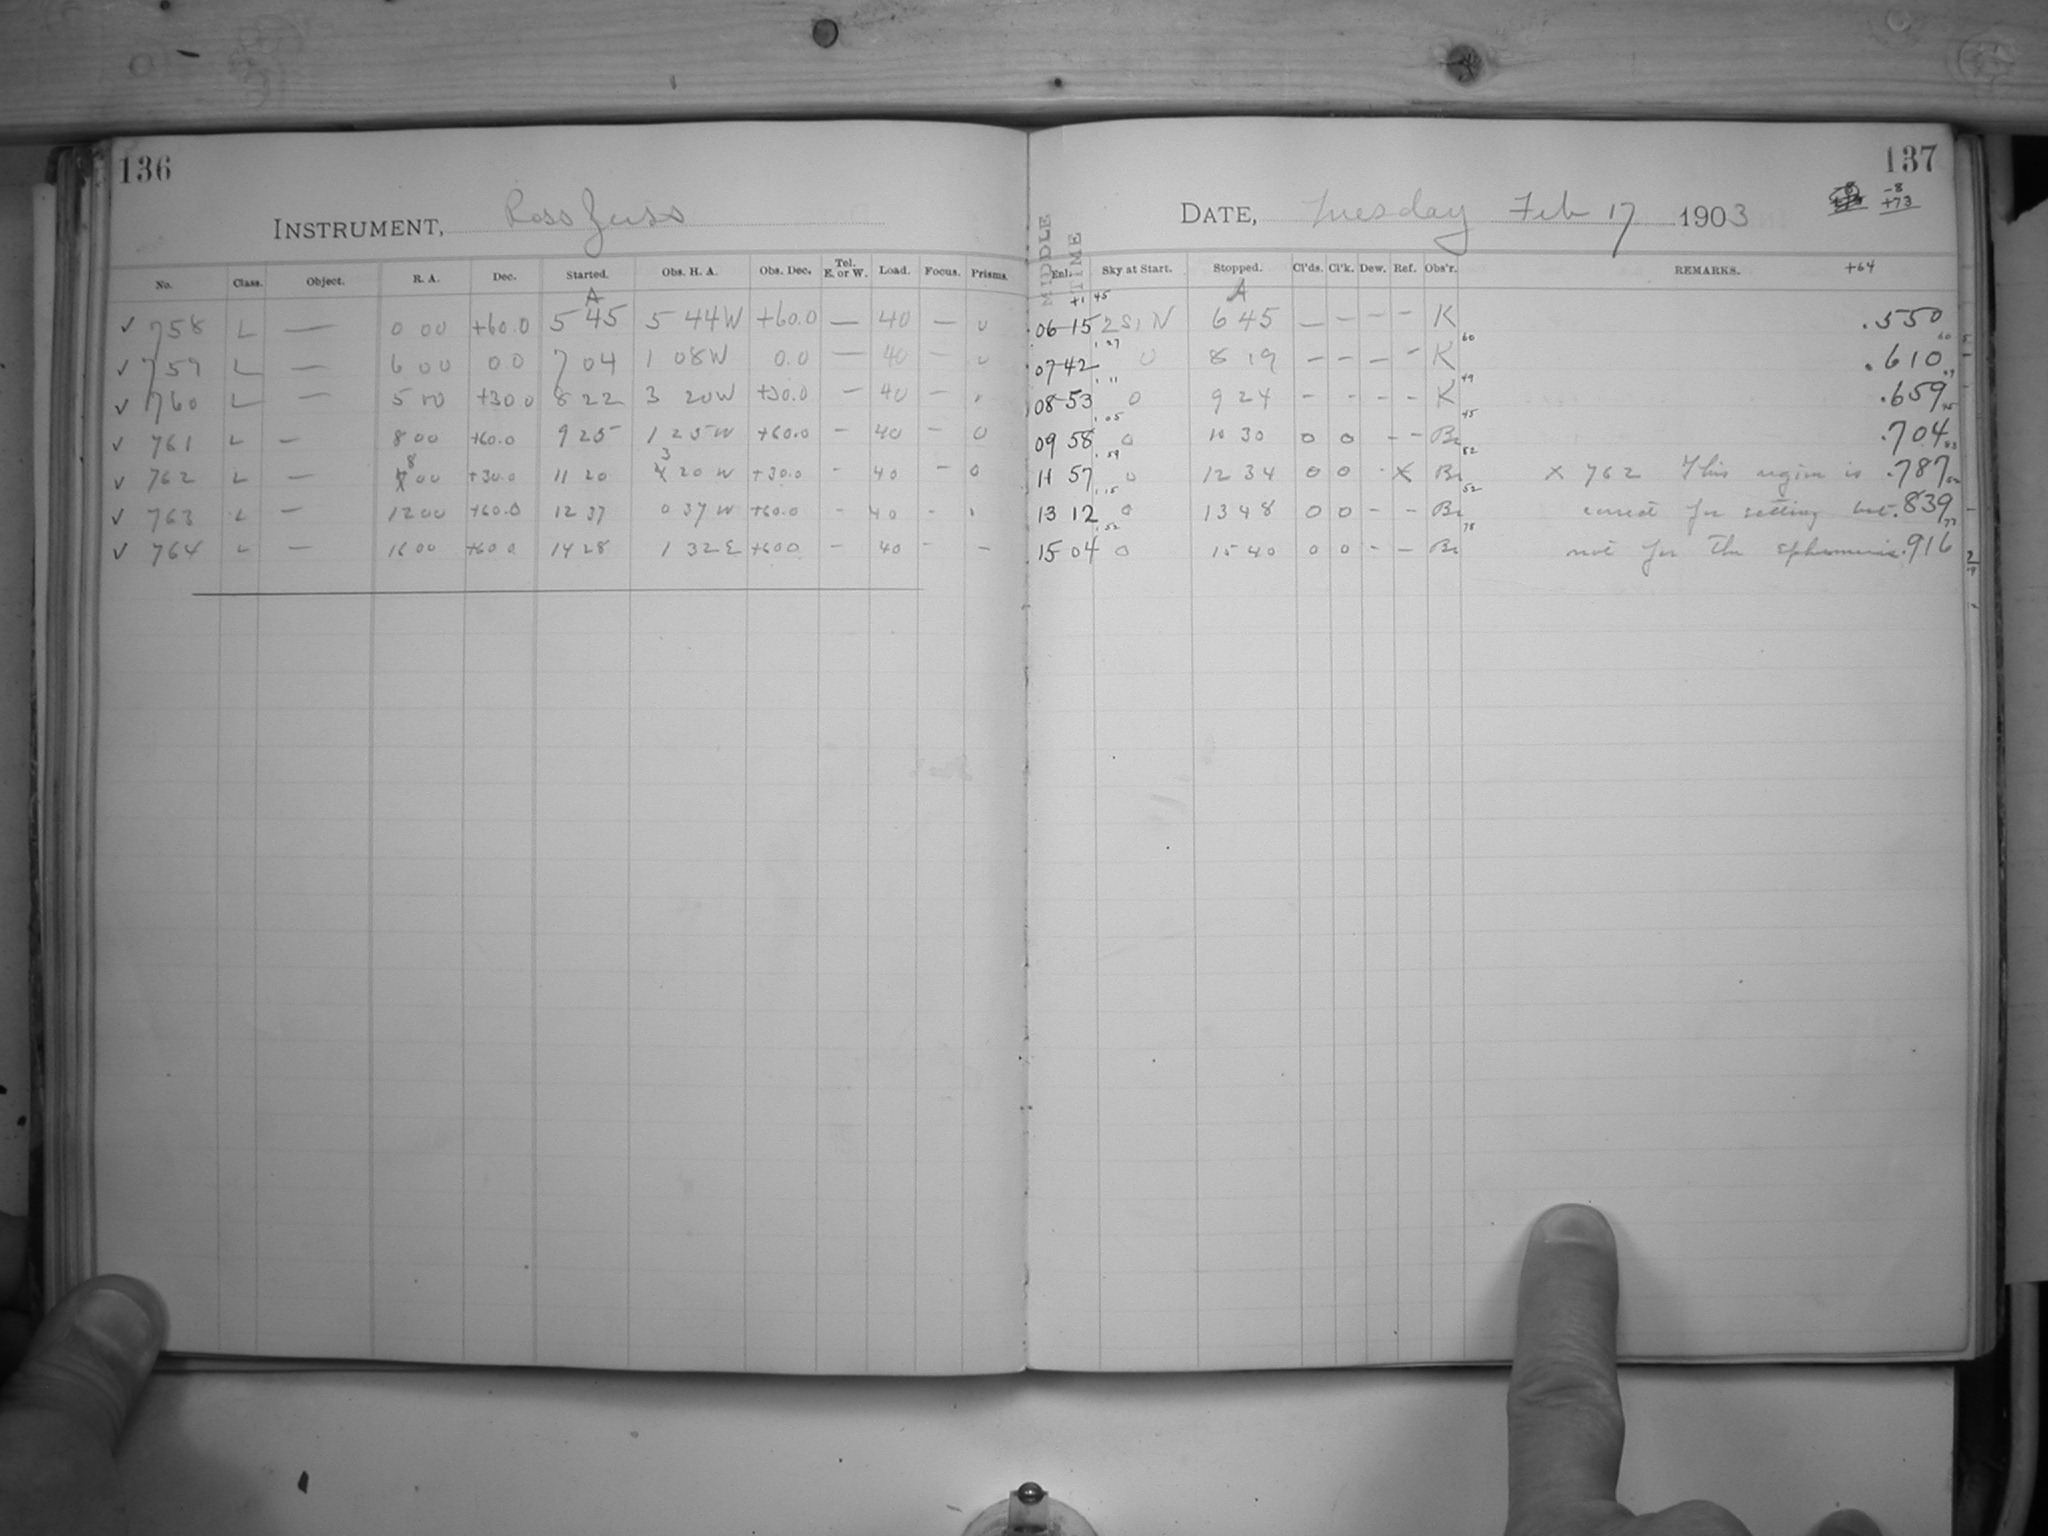 136
INSTRUMENT, Ross
No. Class. Object. R. A. Dec. Started. Obs. H. A. Obs. Dec. Tel. E. or W. Load. Focus. Prisms.
A
✓ 758 L — 0 00 +60.0 5 45 5 44 W +60.0 — 40 — 0
✓ 759 L — 6 00 0.0 7 04 1 08 W 0.0 — 40 — 0
✓ 760 L — 5 00 +30.0 8 22 3 20 W +30.0 — 40 —
✓ 761 L — 8 00 +60.0 9 25 1 25 W +60.0 — 40 — 0
✓ 762 L — 8 00 +30.0 11 20 3 20 W +30.0 - 40 - 0
✓ 763 L — 12 00 +60.0 12 37 0 37 W +60.0 - 40 -
✓ 764 L — 16 00 +60.0 14 28 1 32 E +60.0 — 40 - —
137
-8
+73
DATE, Tuesday Feb 17 1903
MIDDLE TIME
Enl. Sky at Start. Stopped. Cl'ds. Cl'k. Dew. Ref. Obs'r. REMARKS. +64
+1 45 A
06-15 2 S1 N 6 45 — — — — K .550
60
1.27
07-42 0 8 19 — — — — K .610
49
1.11
08-53 0 9 24 - - - - K .659
45
1.05
09 58 0 10 30 0 0 - - Br .704
82
1.59
11 57 0 12 34 0 0 - X Br X 762 This region is .787
52
1.15
13 12 0 13 48 0 0 - - Br correct for setting but .839
78
1.52
15 04 0 15 40 0 0 - — Br not for the ephemeris .916